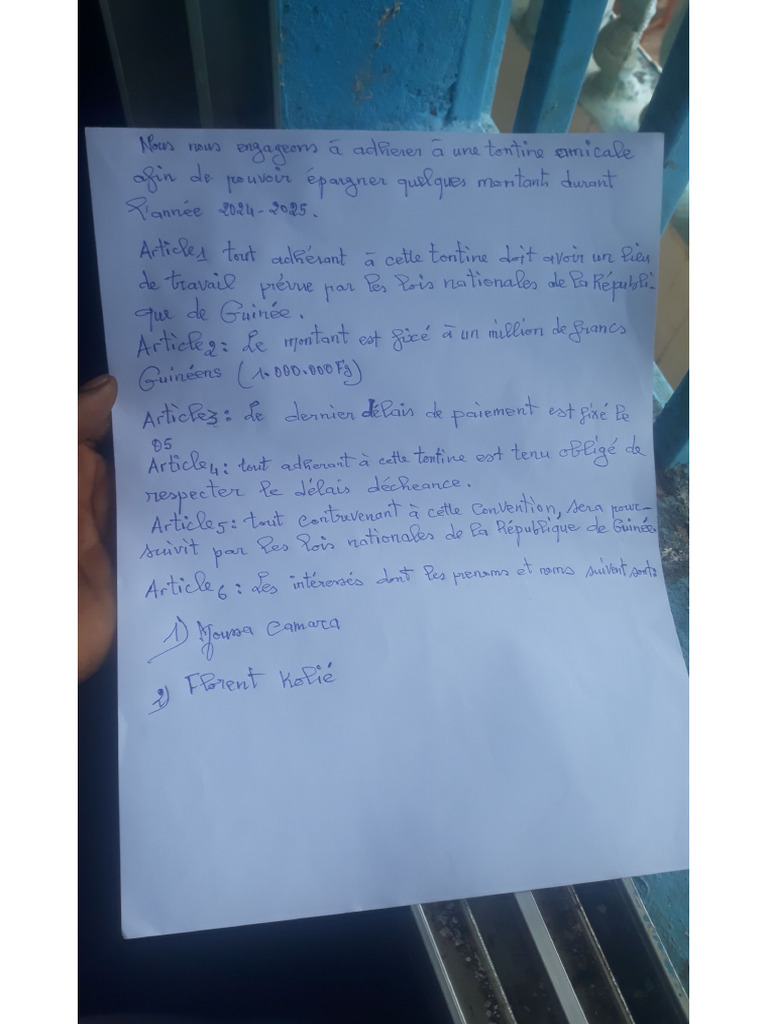 Nous nous engageons à adherer à une tontine amicale
afin de pouvoir épargner quelques montants durant
l'année 2024-2025.
Article1 tout adhérant à cette tontine doit avoir un lieu
de travail prévue par les lois nationales de la Républi-
que de Guinée.
Article2: Le montant est fixé à un million de francs
Guinéens (1.000.000Fg)
Article3: Le dernier délais de paiement est fixé le
05
Article4: tout adherant à cette tontine est tenu obligé de
respecter le délais décheance.
Article5: tout contrevenant à cette Convention, sera pour-
suivit par les lois nationales de la République de Guinée
Article6: Les intéressés dont les prenoms et noms suivent sont:
1) Moussa Camara
2) Florent Kolié